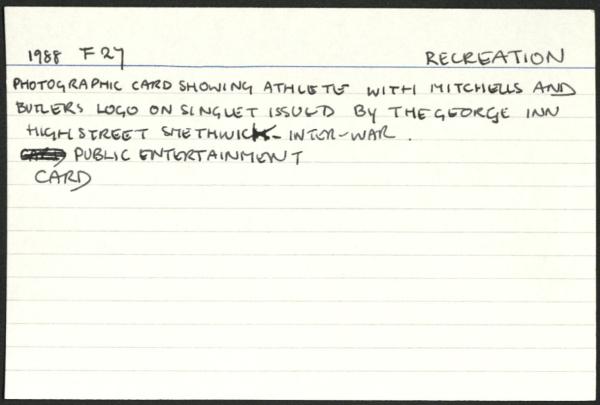 1988 F 27 RECREATION
PHOTOGRAPHIC CARD SHOWING ATHLETE WITH MITCHELLS AND
BUTLERS LOGO ON SINGLET ISSUED BY THE GEORGE INN
HIGH STREET SMETHWICK - INTER-WAR.
PUBLIC ENTERTAINMENT
CARD